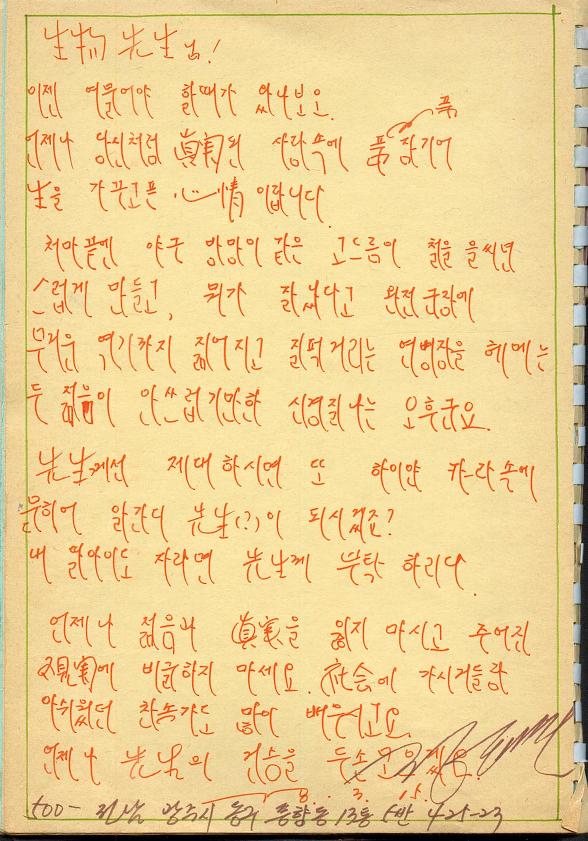 生物 先生님!
이젠 여물어야 할때가 왔나보오.
언제나 당신처럼 眞実된 사랑속에 품 잠기어
품
生을 가꾸고픈 心情 이랍니다.
처마끝엔 야구 방망이 같은 고드름이 철을 을씨년
스럽게 만들고, 뭐가 잘났다고 완전군장에
무거운 역기까지 짊어지고 질퍽거리는 연병장을 헤메는
두 젊음이 안쓰럽기만한 신경질나는 오후군요.
先生께선 제대하시면 또 하이얀 카-라 속에
묻히어 얇간디 先生(?)이 되시겠죠?
내 딸아이도 자라면 先生께 부탁 하리다.
언제나 젊음과 眞実을 잃지 마시고 주어진
現実에 비굴하지 마세요. 社会에 가시거들랑
아쉬웠던 찬송가도 많이 배우시고요.
언제나 先生님의 건승을
8. 3. 15.
500- 전남 광주시 동구 동향동 13통 5반 425-23